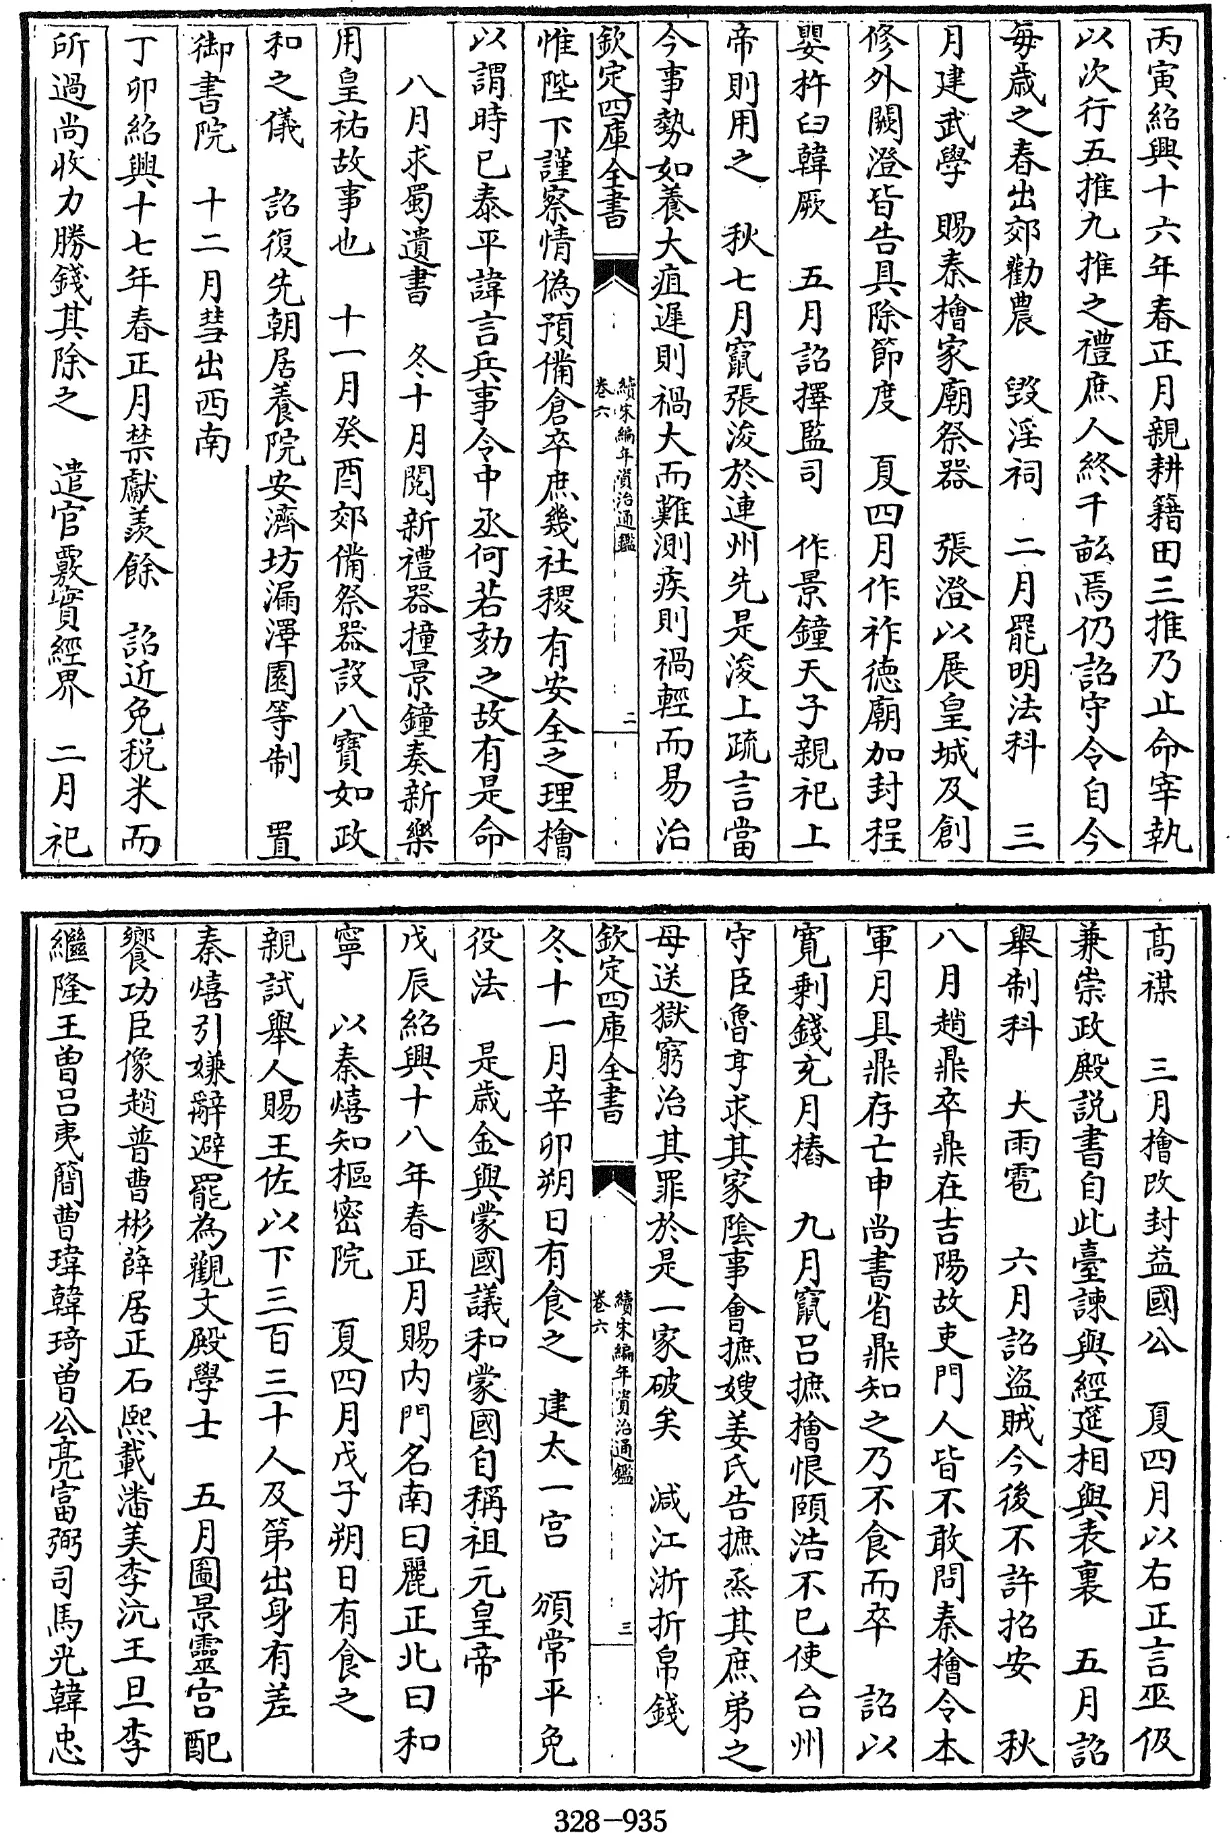 丙寅紹興十六年春正月親耕籍田三推乃止命宰執
以次行五推九推之禮庶人終千畝焉仍詔守令自今
每歲之春出郊勸農　毀淫祠　二月罷明法科　三
月建武學　賜秦檜家廟祭器　張澄以展皇城及創
修外闕澄皆告具除節度　夏四月作祚德廟加封程
嬰杵臼韓厥　五月詔擇監司　作景鐘天子親祀上
帝則用之　秋七月竄張浚於連州先是浚上疏言當
今事勢如養大疽遲則禍大而難測疾則禍輕而易治
欽定四庫全書
續宋編年資治通鑑
卷六
二
惟陛下謹察情偽預備倉卒庶幾社稷有安全之理檜
以謂時已泰平諱言兵事令中丞何若劾之故有是命
八月求蜀遺書　冬十月閱新禮器撞景鐘奏新樂
用皇祐故事也　十一月癸酉郊備祭器設八寶如政
和之儀　詔復先朝居養院安濟坊漏澤園等制　置
御書院　十二月彗出西南
丁卯紹興十七年春正月禁獻羨餘　詔近免稅米而
所過尚收力勝錢其除之　遣官覈實經界　二月祀
高禖　三月檜改封益國公　夏四月以右正言巫伋
兼崇政殿說書自此臺諫與經筵相與表裏　五月詔
舉制科　大雨雹　六月詔盜賊今後不許招安　秋
八月趙鼎卒鼎在吉陽故吏門人皆不敢問秦檜令本
軍月具鼎存亡申尚書省鼎知之乃不食而卒　詔以
寬剩錢充月樁　九月竄呂摭檜恨頤浩不已使台州
守臣魯亨求其家陰事會摭嫂姜氏告摭烝其庶弟之
母送獄窮治其罪於是一家破矣　減江浙折帛錢
欽定四庫全書
續宋編年資治通鑑
卷六
三
冬十一月辛卯朔日有食之　建太一宮　頒常平免
役法　是歲金與蒙國議和蒙國自稱祖元皇帝
戊辰紹興十八年春正月賜內門名南曰麗正北曰和
寧　以秦熺知樞密院　夏四月戊子朔日有食之
親試舉人賜王佐以下三百三十人及第出身有差
秦熺引嫌辭避罷為觀文殿學士　五月圖景靈宮配
饗功臣像趙普曹彬薛居正石熙載潘美李沆王旦李
繼隆王曾呂夷簡曹瑋韓琦曾公亮富弼司馬光韓忠
328-935